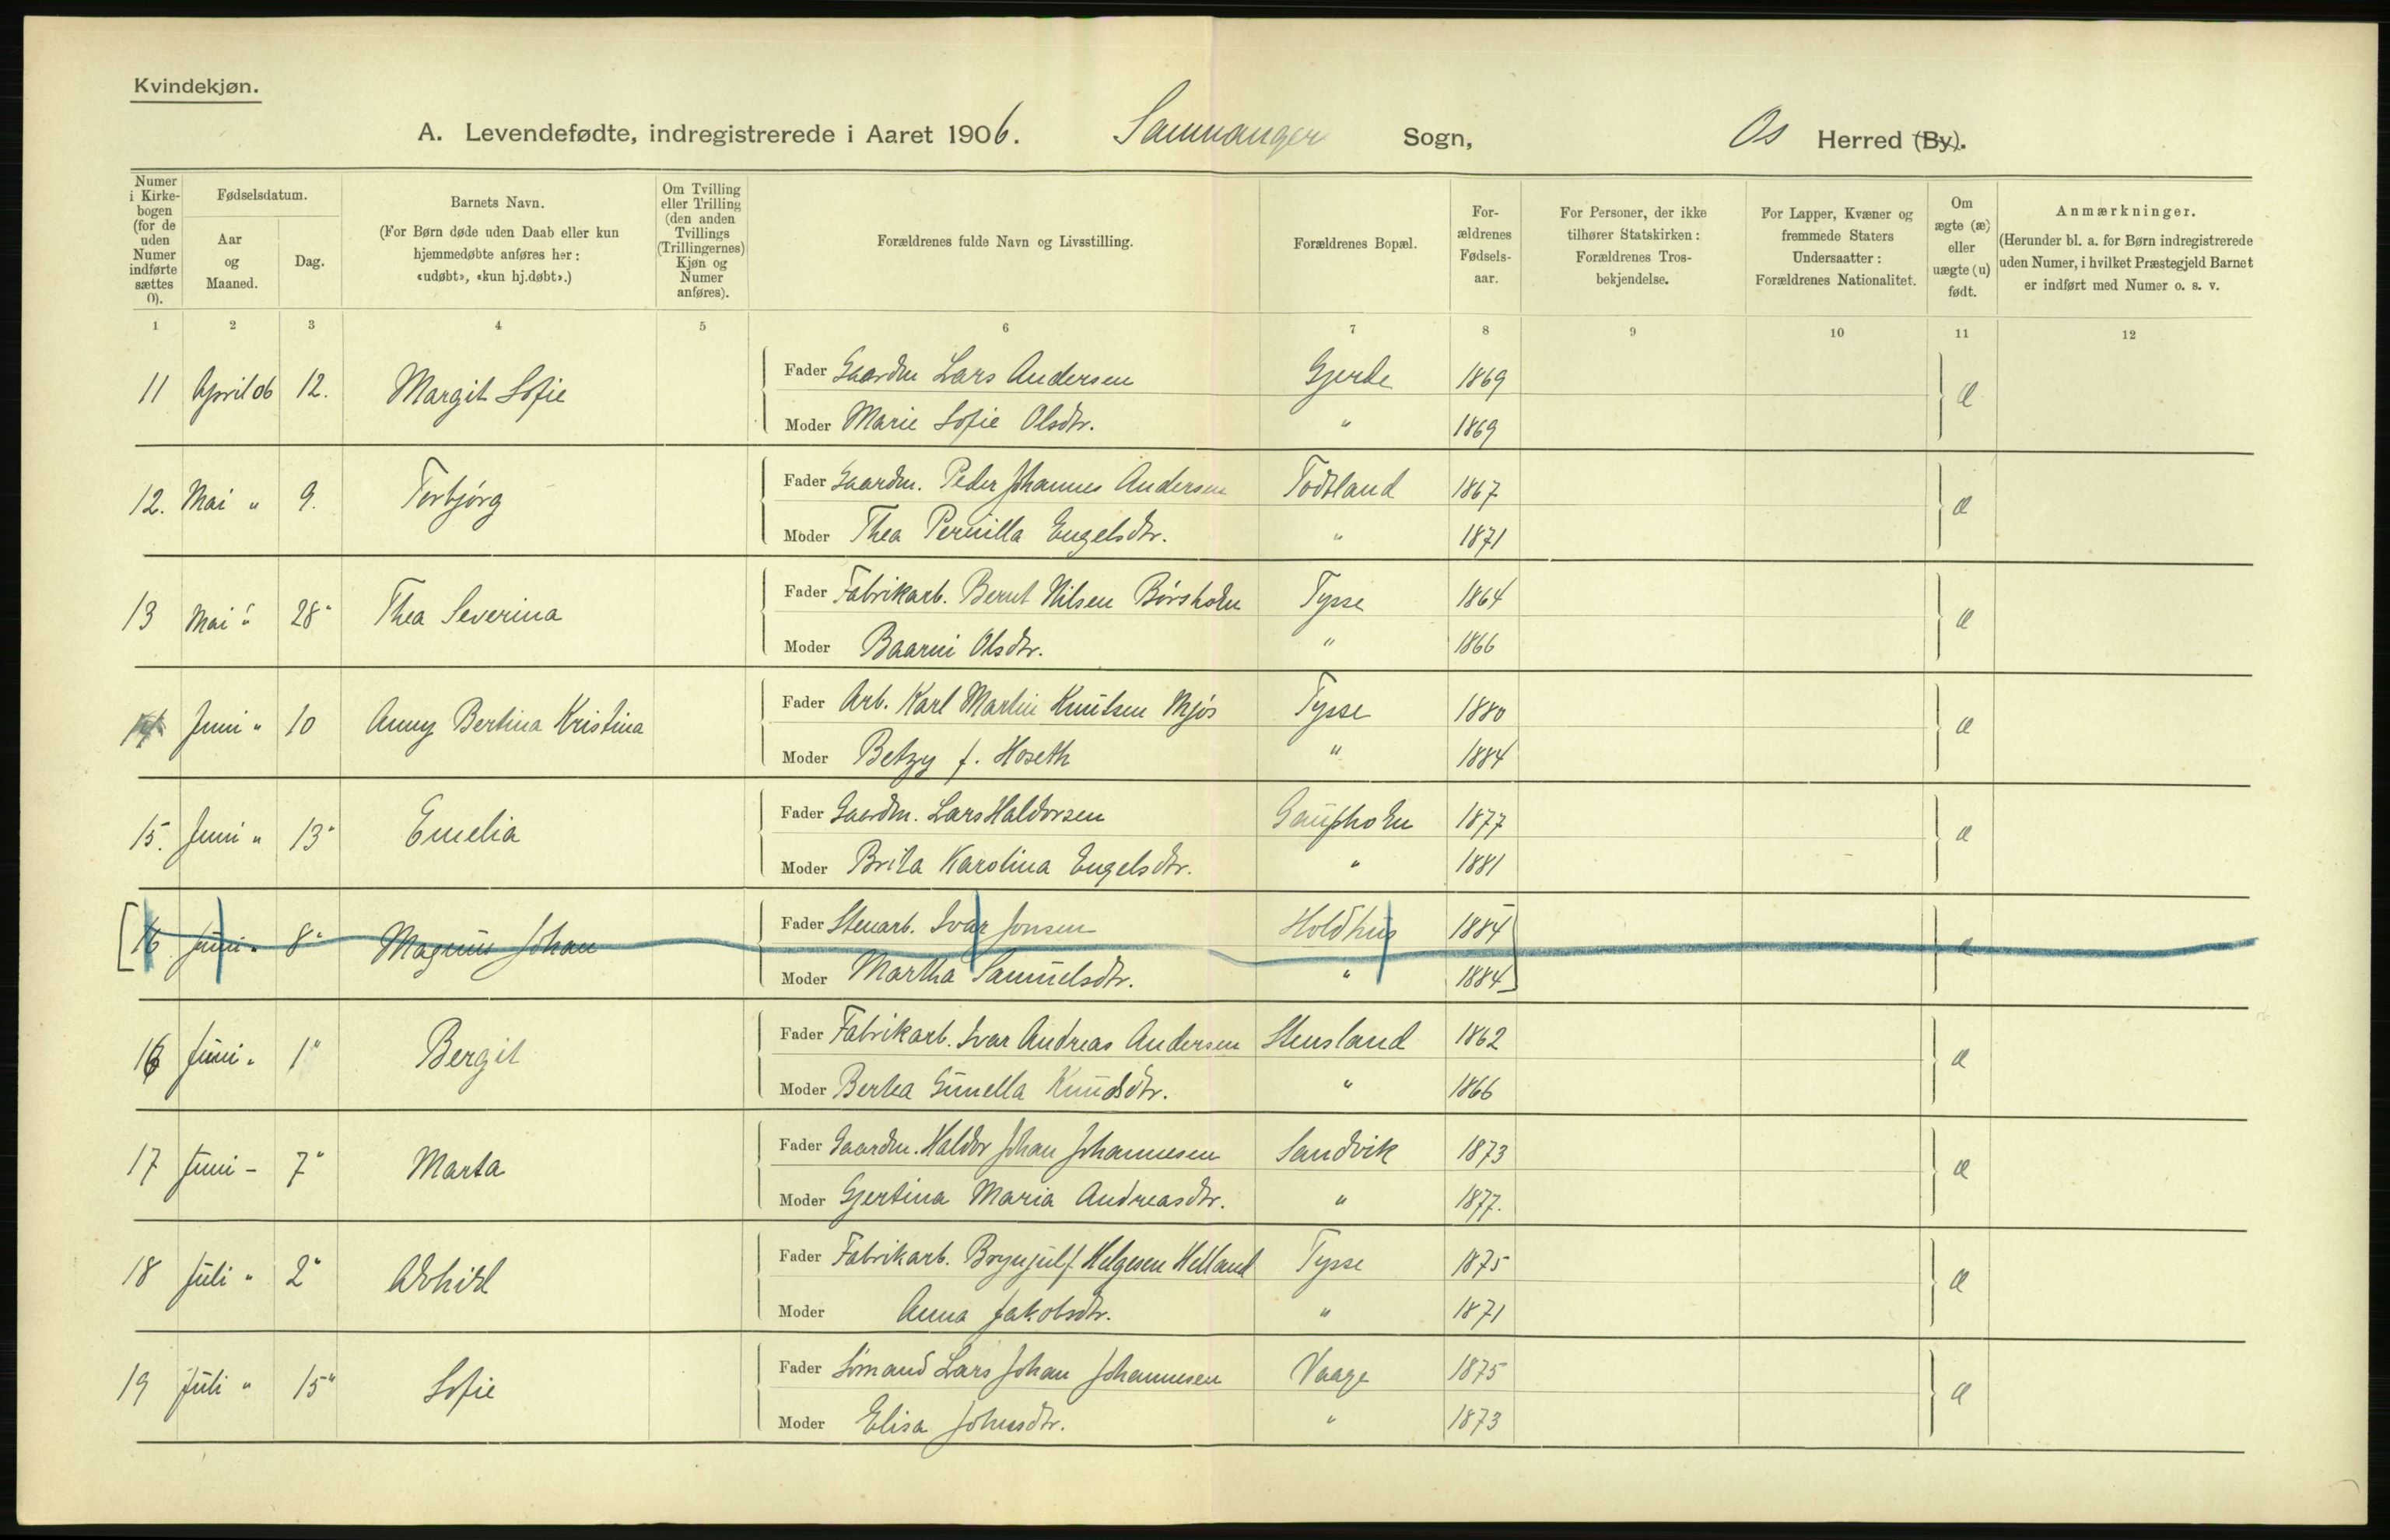 Kvindekjøn.
A. Levendefødte, indregistrerede i Aaret 1906. Samnanger Sogn, Os Herred (By).
Numer i Kirkebogen (for de uden Numer indførte sættes 0).
Fødselsdatum.
Aar og Maaned.
Dag.
Barnets Navn.
(For Børn døde uden Daab eller kun hjemmedøbte anføres her: «udøbt», «kun hj.døbt».)
Om Tvilling eller Trilling (den anden Tvillings (Trillingernes) Kjøn og Numer anføres).
Forældrenes fulde Navn og Livsstilling.
Forældrenes Bopæl.
Forældrenes Fødselsaar.
For Personer, der ikke tilhører Statskirken: Forældrenes Trosbekjendelse.
For Lapper, Kvæner og fremmede Staters Undersaatter: Forældrenes Nationalitet.
Om ægte (æ) eller uægte (u) født.
Anmærkninger.
(Herunder bl. a. for Børn indregistrerede uden Numer, i hvilket Præstegjeld Barnet er indført med Numer o. s. v.
1 2 3 4 5 6 7 8 9 10 11 12
11 April 06 12. Margit Sofie Fader Gaardm Lars Andersen Gjerde 1869 æ
Moder Marie Sofie Olsdtr. " 1869
12. Mai " 9. Torbjørg Fader Gaardm. Peder Johannes Andersen Todtland 1867 æ
Moder Thea Pernilla Engelsdtr. " 1871
13 Mai " 28" Thea Severina Fader Fabrikarb. Bernt Nilsen Børsholm Tysse 1864 æ
Moder Baarni Olsdtr. " 1866
14 Juni " 10 Anny Bertina Kristina Fader Arb. Karl Martin Knutsen Mjøs Tysse 1880 æ
Moder Betzy f. Hoseth " 1884
15. Juni " 13" Emelia Fader Gaardm. Lars Haldorsen Gaupholm 1877 æ
Moder Brita Karolina Engelsdtr. " 1881
[16 Juni " 8" Magnus Johan Fader Stenarb. Ivar Jonsen Holdhus 1884] æ
Moder Martha Samuelsdtr. " 1884
16 Juni " 1" Bergit Fader Fabrikarb. Ivar Andreas Andersen Stensland 1862 æ
Moder Berta Gunella Knudsdtr. " 1866
17 Juni - 7" Marta Fader Gaardm. Haldor Johan Johannesen Sandvik 1873 æ
Moder Gjertina Maria Andreasdtr. " 1877.
18 Juli " 2" Fader Fabrikarb. Brynjulf Helgesen Helland Tysse 1875 æ
Moder Anna Jakobsdtr. " 1871
19 Juli " 15" Sofie Fader Sømand Lars Johan Johannesen Vaage 1875 æ
Moder Elisa Johnsdtr. " 1873